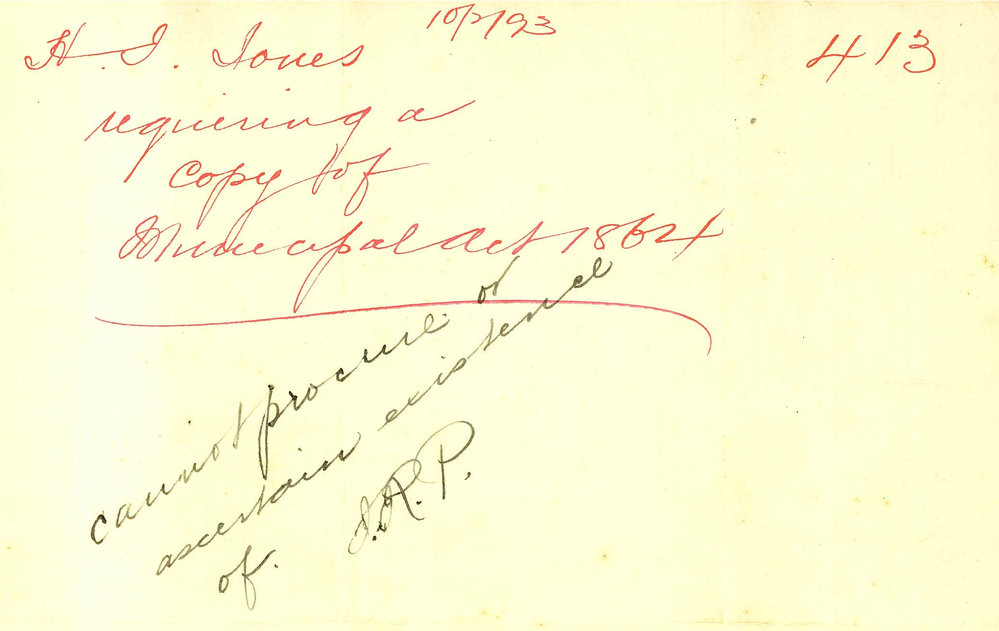 10/2/93
H. J. Jones
413
requiring a
copy of
Municipal Act 1864
cannot procure or
ascertain existence
of. J.R.P.